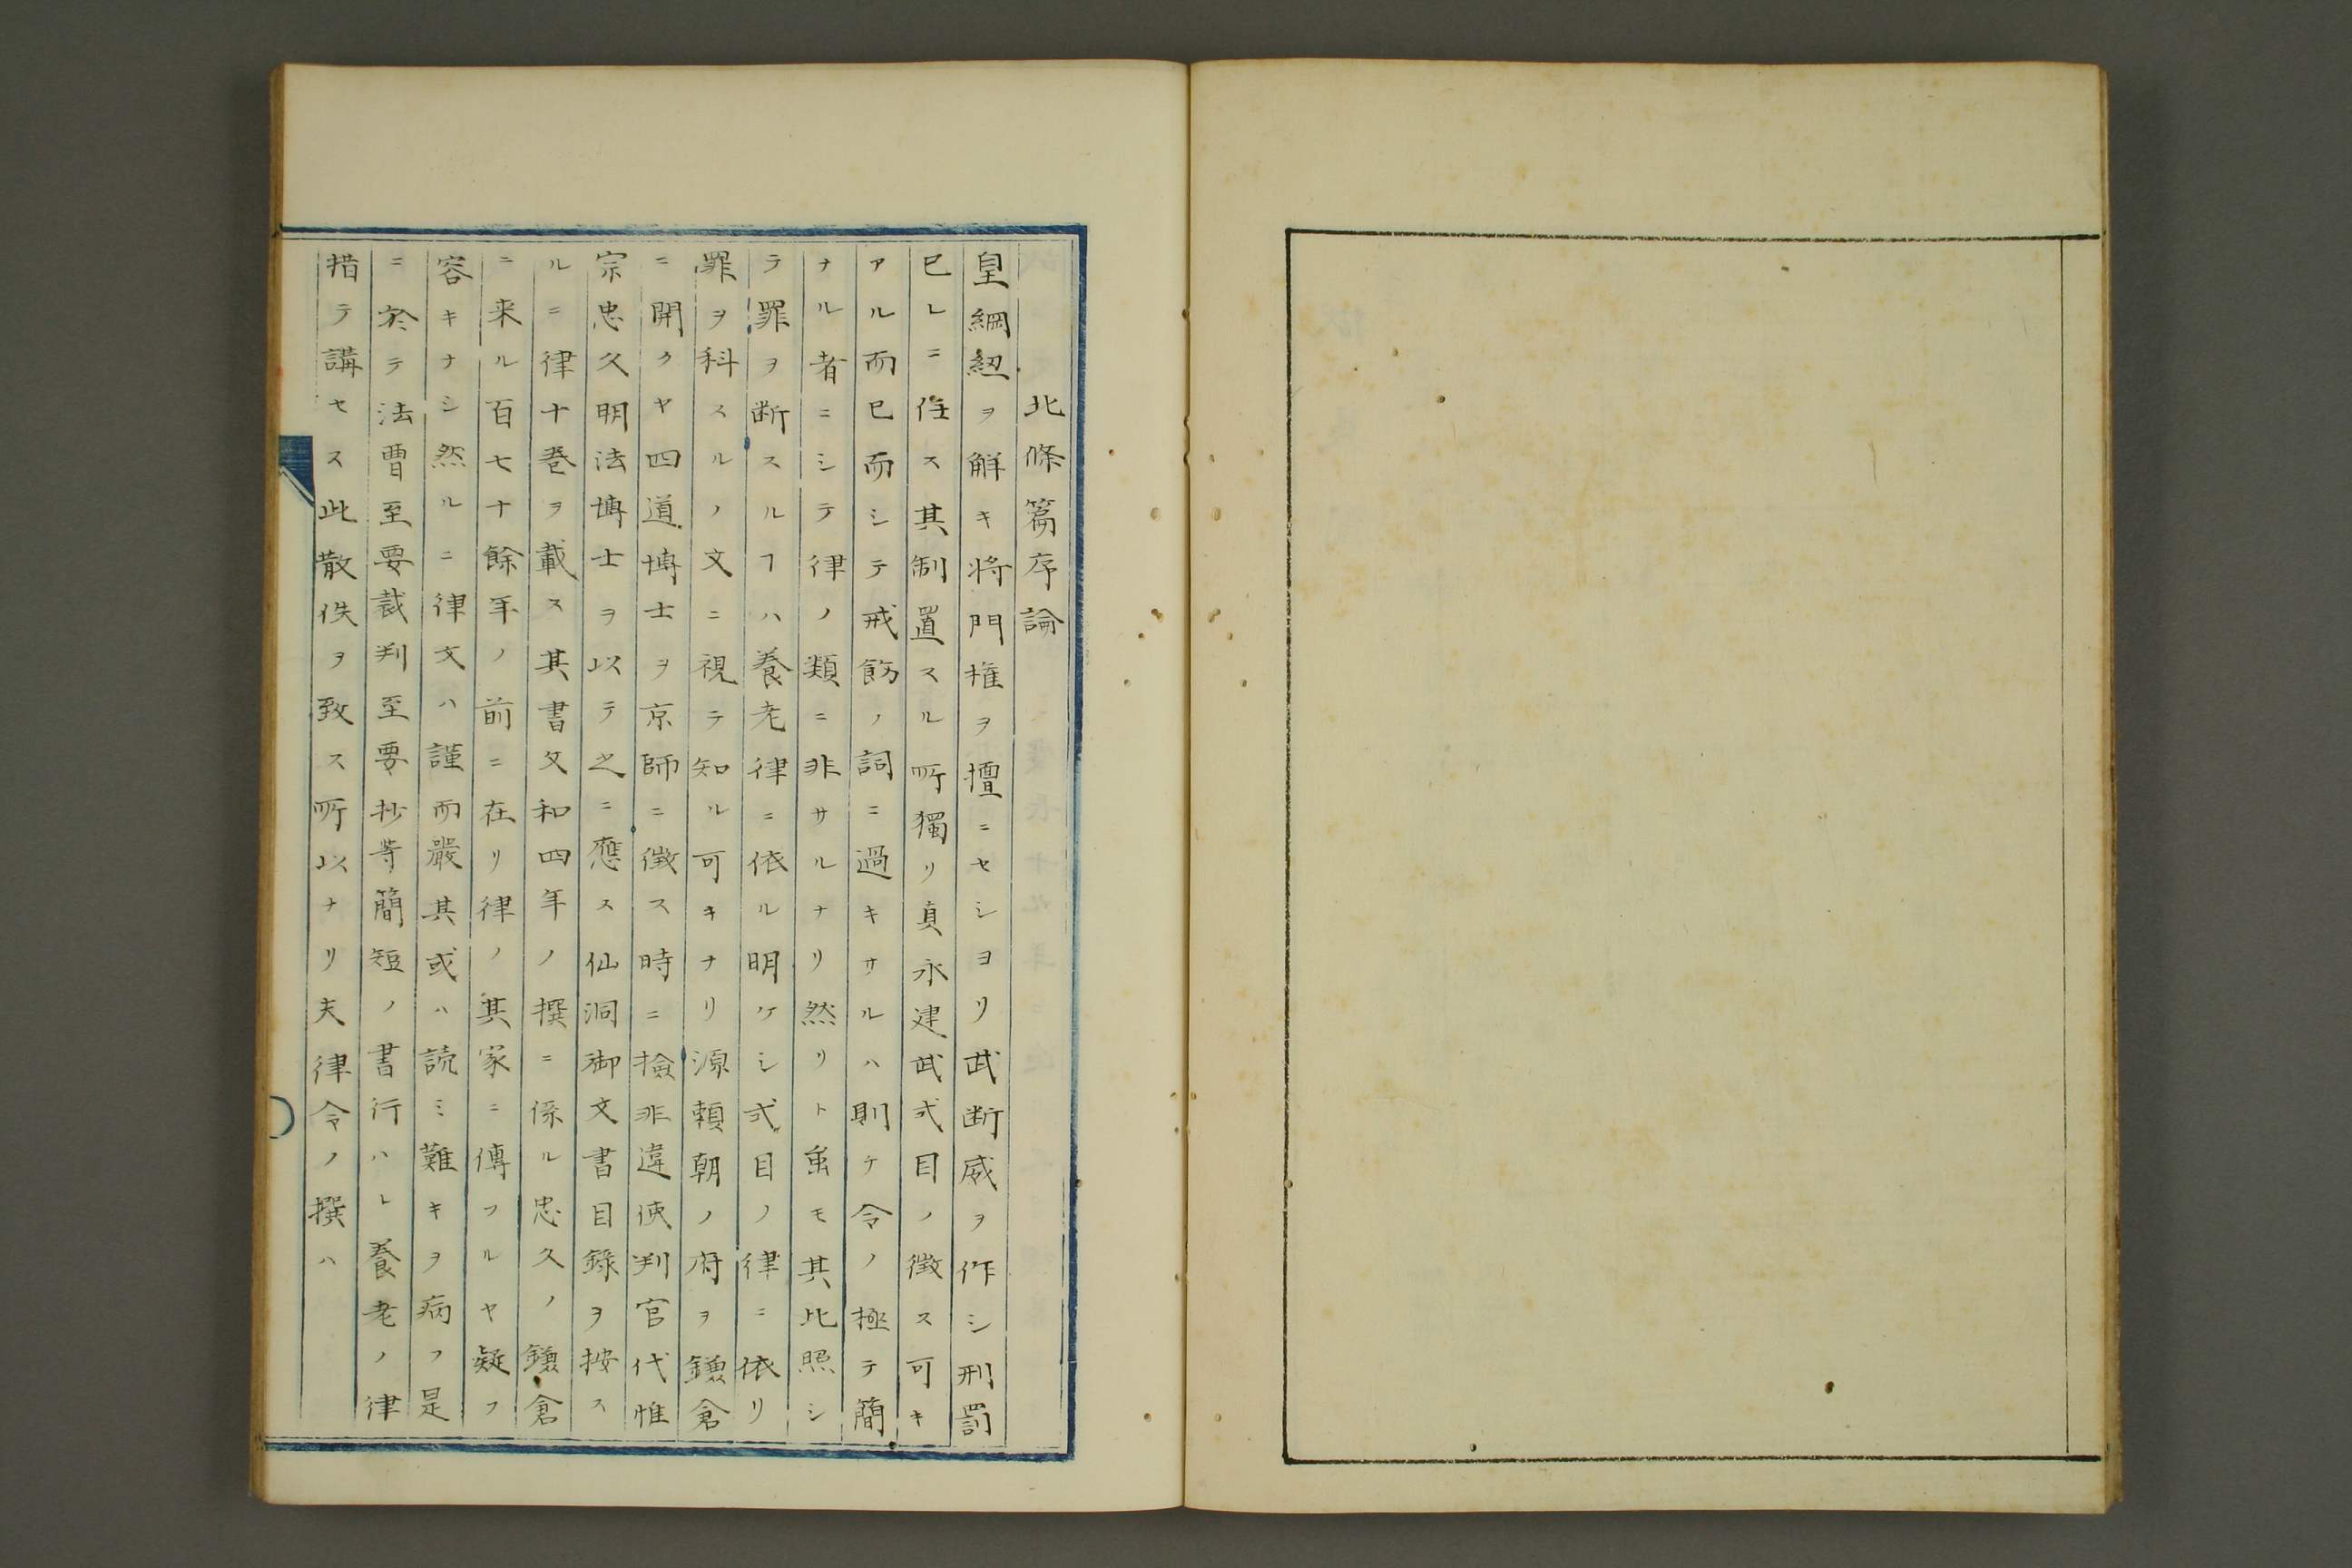 北條篇序論
皇綱紐ヲ解キ将門権ヲ擅ニセシヨリ武断威ヲ作シ刑罰
已レニ任ス其制置スル所獨リ貞永建武式目ノ徴ス可キ
アル而已而シテ戒飭ノ詞ニ過キサルハ則チ令ノ極テ簡
ナル者ニシテ律ノ類ニ非サルナリ然リト虽モ其比照シ
テ罪ヲ断スルヿハ養老律ニ依ル明ケシ式目ノ律ニ依リ
罪ヲ科スルノ文ニ視テ知ル可キナリ源頼朝ノ府ヲ鎌倉
ニ開クヤ四道博士ヲ京師ニ徴ス時ニ撿非違使判官代惟
宗忠久明法博士ヲ以テ之ニ應ス仙洞御文書目録ヲ按ス
ルニ律十巻ヲ載ス其書文和四年ノ撰ニ係ル忠久ノ鎌倉
ニ来ル百七十餘年ノ前ニ在リ律ノ其家ニ傳フルヤ疑フ
容キナシ然ルニ律文ハ謹而嚴其或ハ読ミ難キヲ病フ是
ニ於テ法曹至要裁判至要抄等簡短ノ書行ハレ養老ノ律
措テ講セス此散佚ヲ致ス所以ナリ夫律令ノ撰ハ